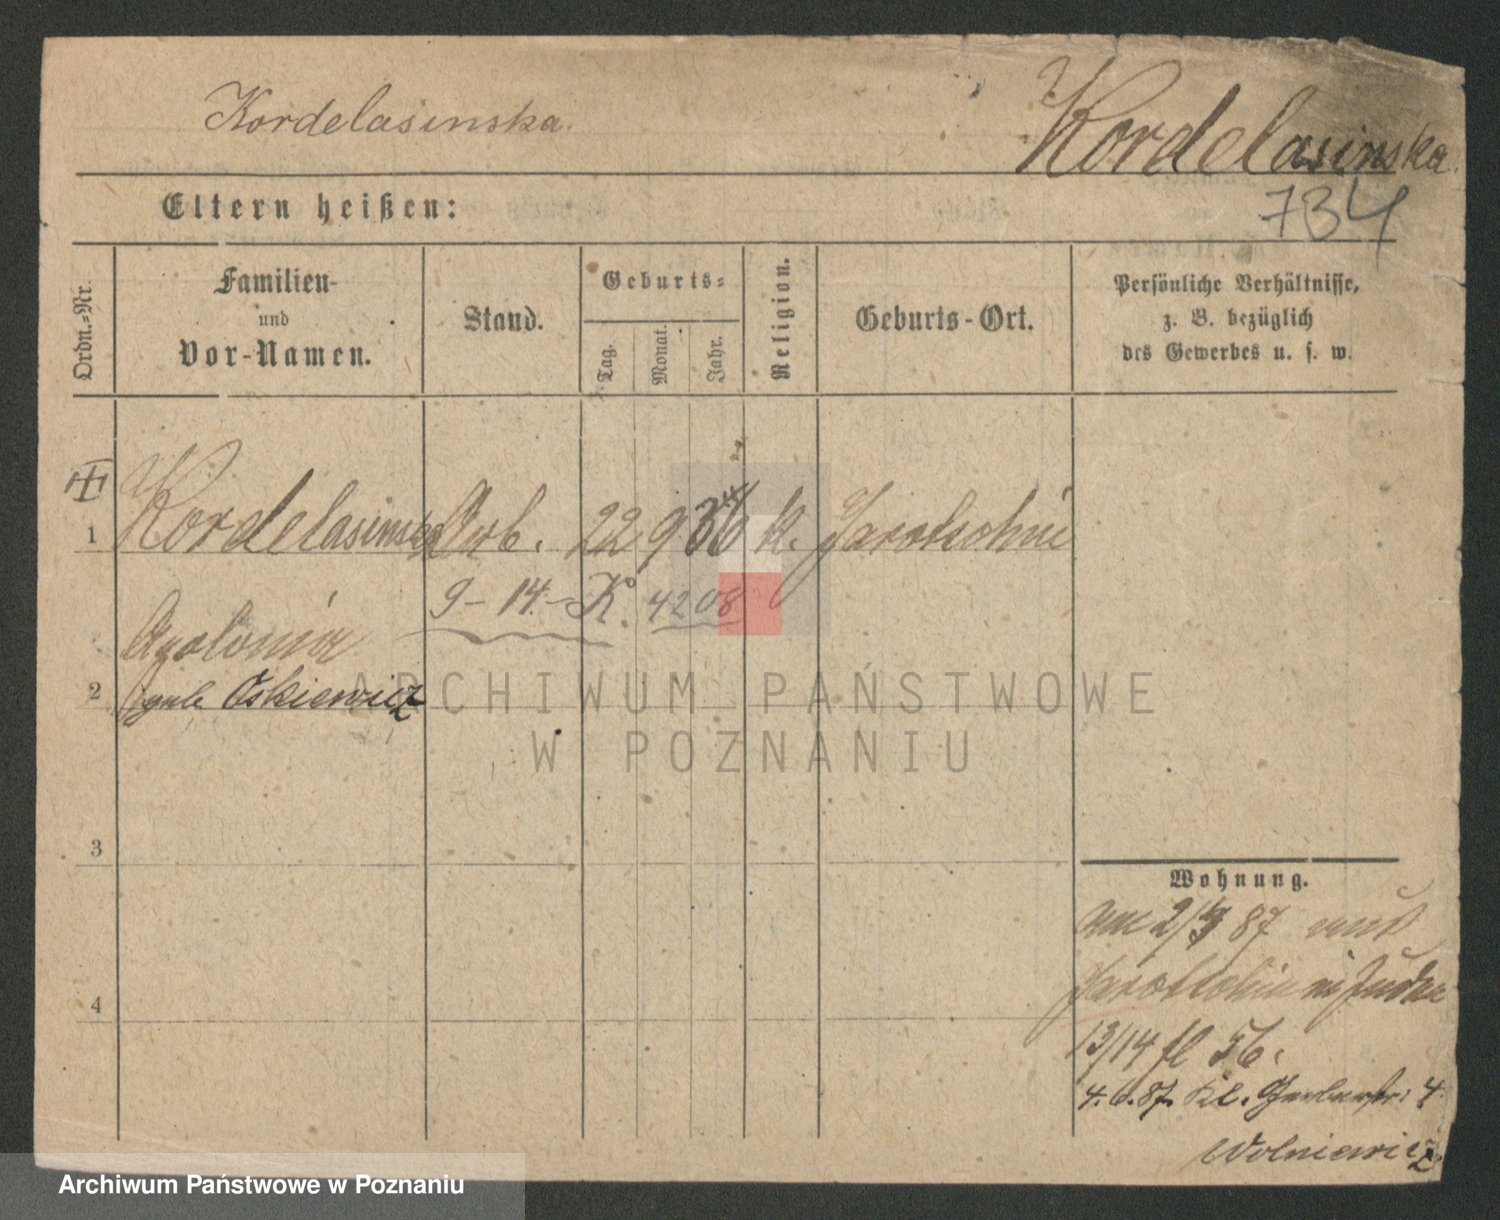 Kordelasinska.
Kordelasinska.
734
Eltern heißen:
Ordn.-Nr.
Familien-
und
Vor-Namen.
Stand.
Geburts-
Tag.
Monat.
Jahr.
Religion.
Geburts-Ort.
Persönliche Verhältnisse,
z. B. bezüglich
des Gewerbes u. s. w.
1 Kordelasinska Arb. 22 9 36 k. Jarotschin
9-14.- K. 4208
Apolonia
2 Oskiewicz
ARCHIWUM PAŃSTWOWE
W POZNANIU
3
Wohnung.
87
Jarotschin
4
13/14 fl 56.
4. 6. 87. Kl. Gerberstr: 4
Wolniewicz
Archiwum Państwowe w Poznaniu